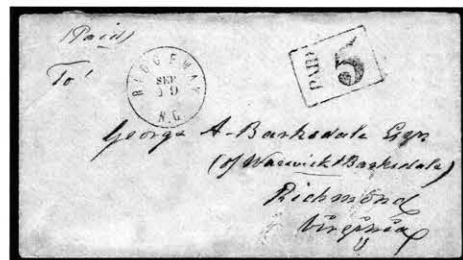 (Paid)
To!
RIDGEWAY
SEP
19
N.C.
PAID
5
George A. Barksdale Esqr
(of Warwick & Barksdale)
Richmond
Virginia